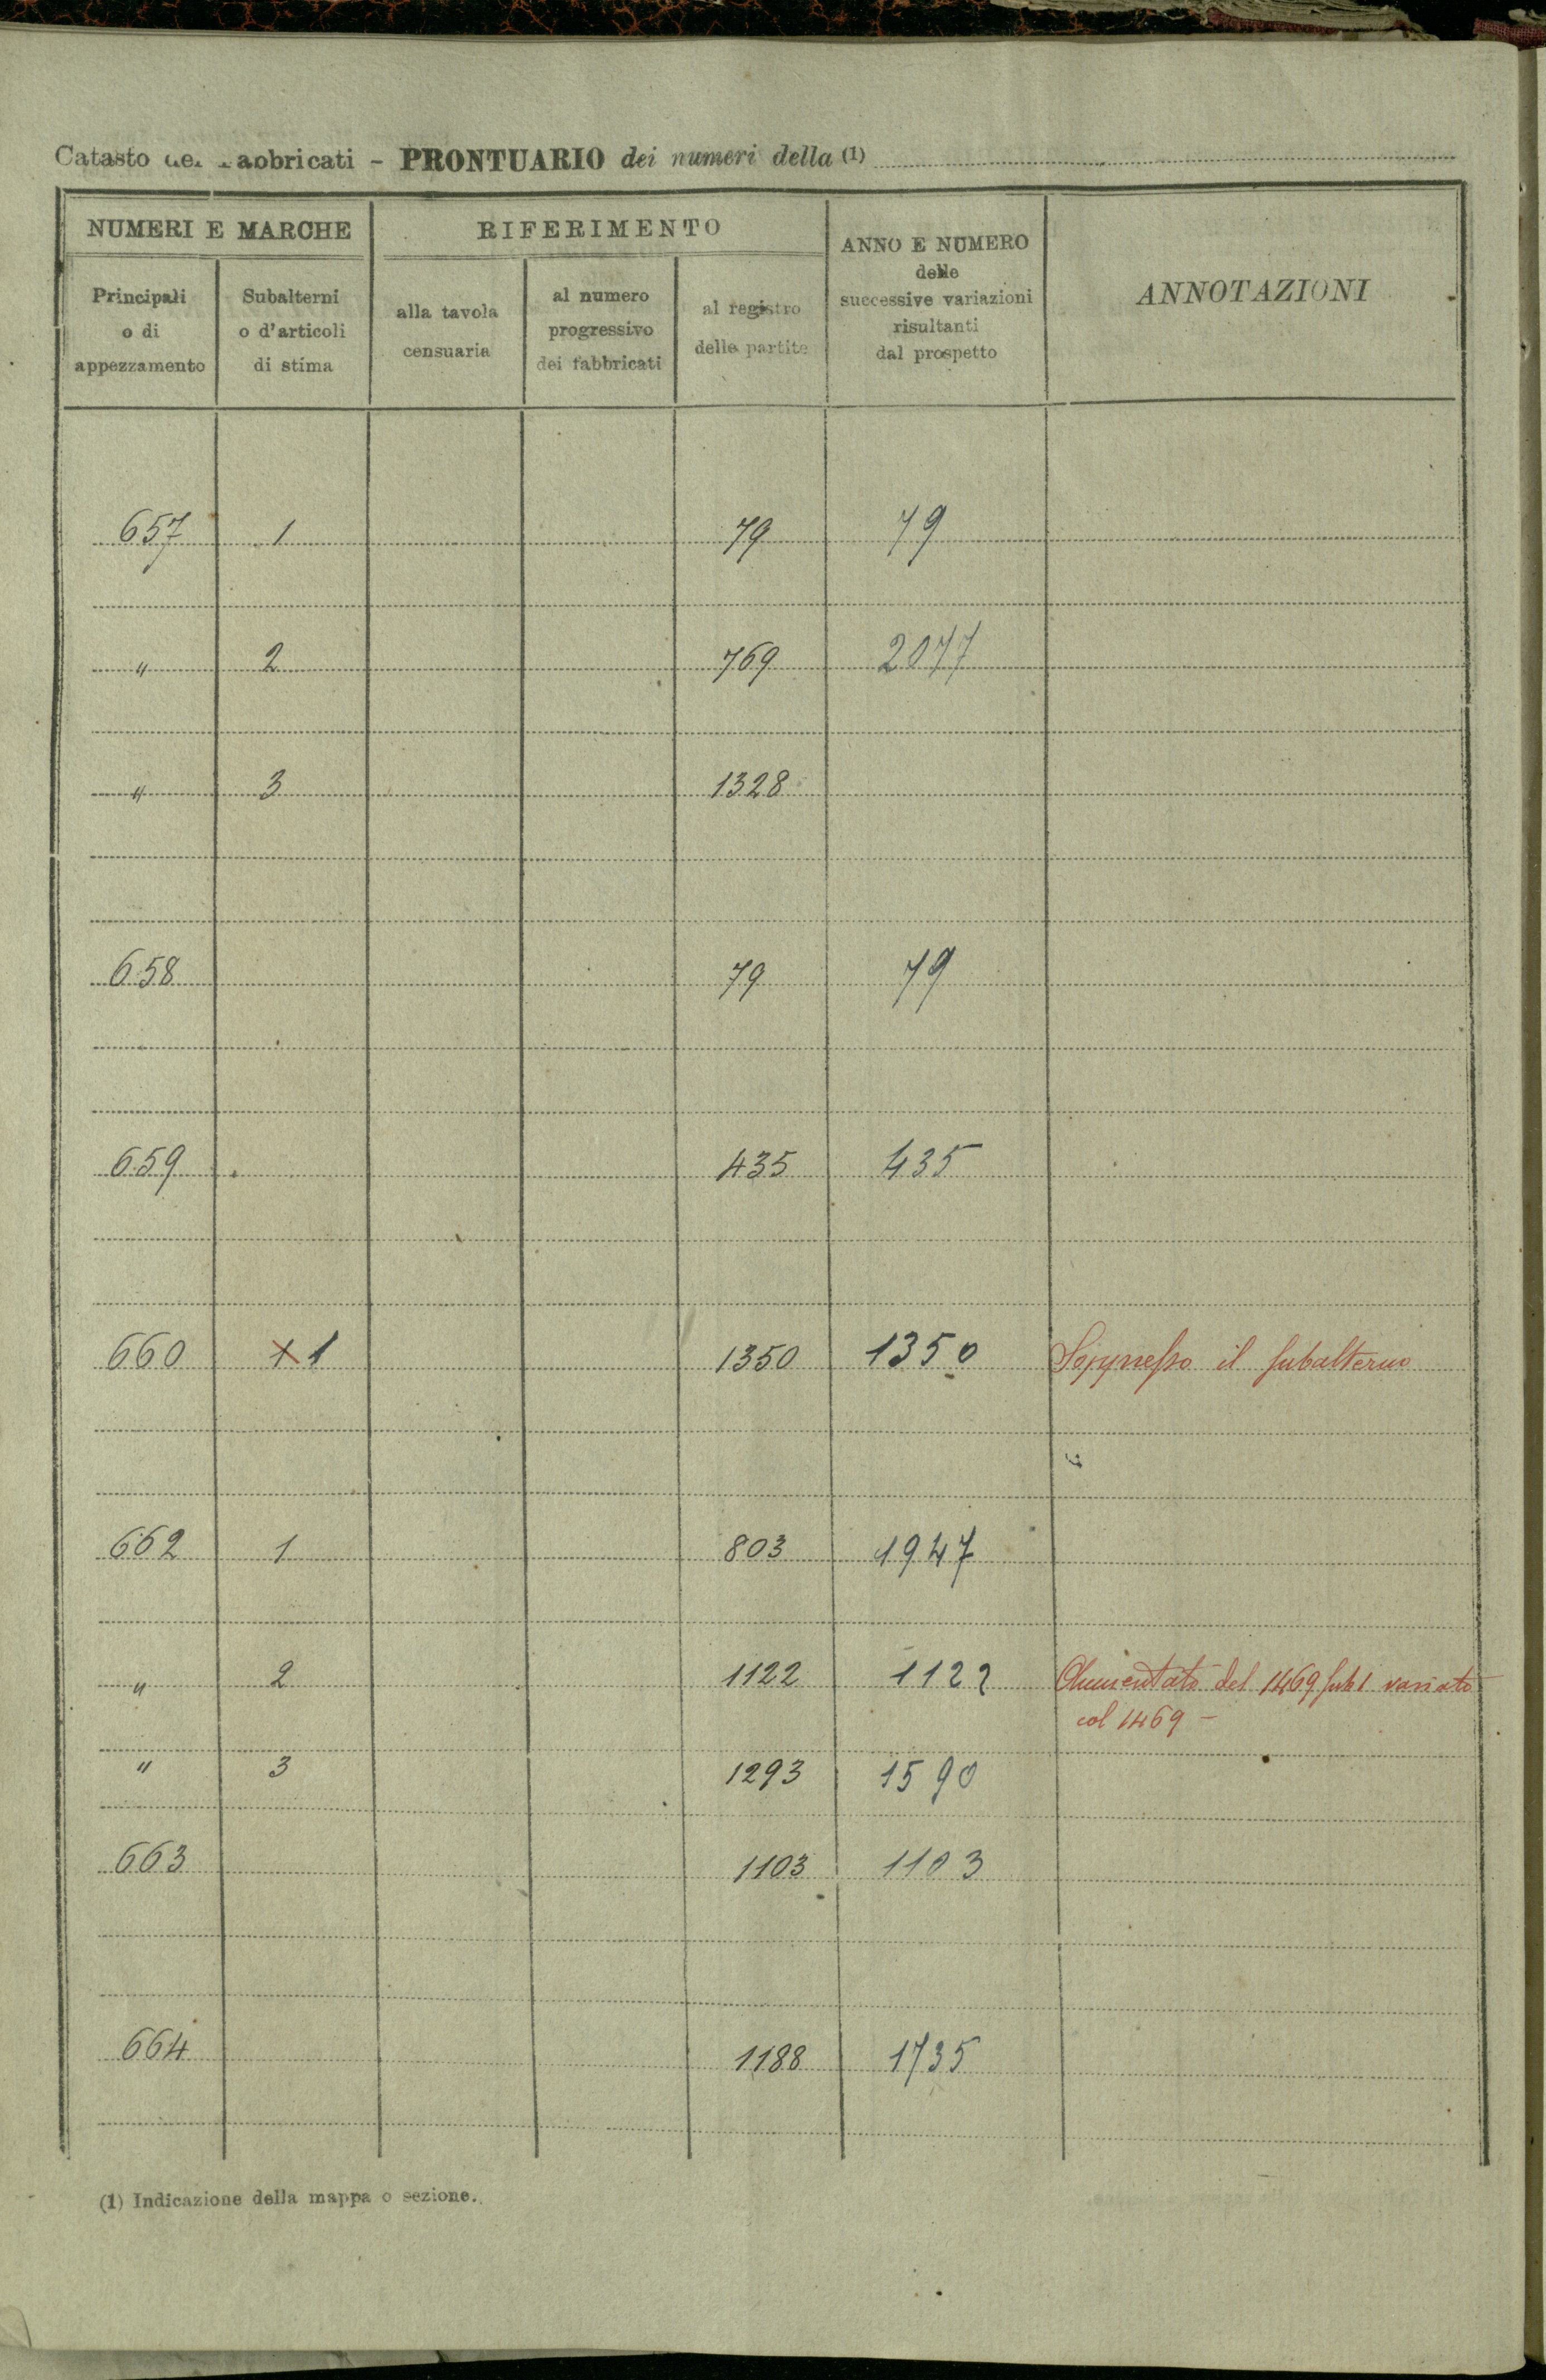 Catasto dei Fabbricati - PRONTUARIO dei numeri della (1)
NUMERI E MARCHE
RIFERIMENTO
ANNO E NUMERO
delle
successive variazioni
risultanti
dal prospetto
ANNOTAZIONI
Principali
o di
appezzamento
Subalterni
o d'articoli
di stima
alla tavola
censuaria
al numero
progressivo
dei fabbricati
al registro
delle partite
657 1 79 79
" 2 769 2077
" 3 1328
658 79 79
659 435 435
660 1 1350 1350 Soppresso il subalterno
662 1 803 1947
" 2 1122 1122 Aumentato del 1469 sub 1 variato
col 1469 -
" 3 1293 1590
663 1103 1103
664 1188 1735
(1) Indicazione della mappa o sezione.